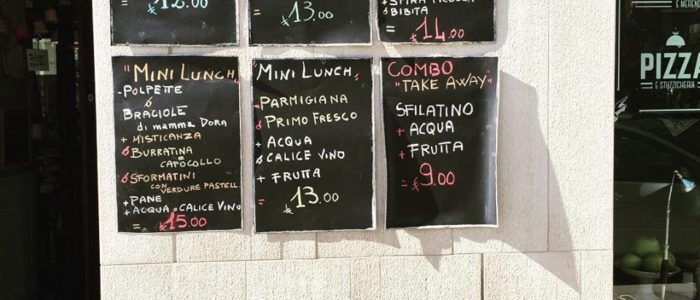 = 12.00
= € 13.00
BIBITA
= € 14.00
"MINI LUNCH"
-POLPETTE
ó
BRACIOLE
di mamma DORA
+ MISTICANZA
ó BURRATINA e
CAPOCOLLO
ó SFORMATINI
CON VERDURE PASTELL.
+ PANE
+ ACQUA o CALICE VINO
= € 15.00
"MINI LUNCH"
- PARMIGIANA
ó PRIMO FRESCO
+ ACQUA
ó CALICE VINO
+ FRUTTA
= € 13.00
COMBO
"TAKE AWAY"
SFILATINO
+ ACQUA
+ FRUTTA
= € 9.00
E MEREND
PIZZA
E STUZZICHERIA